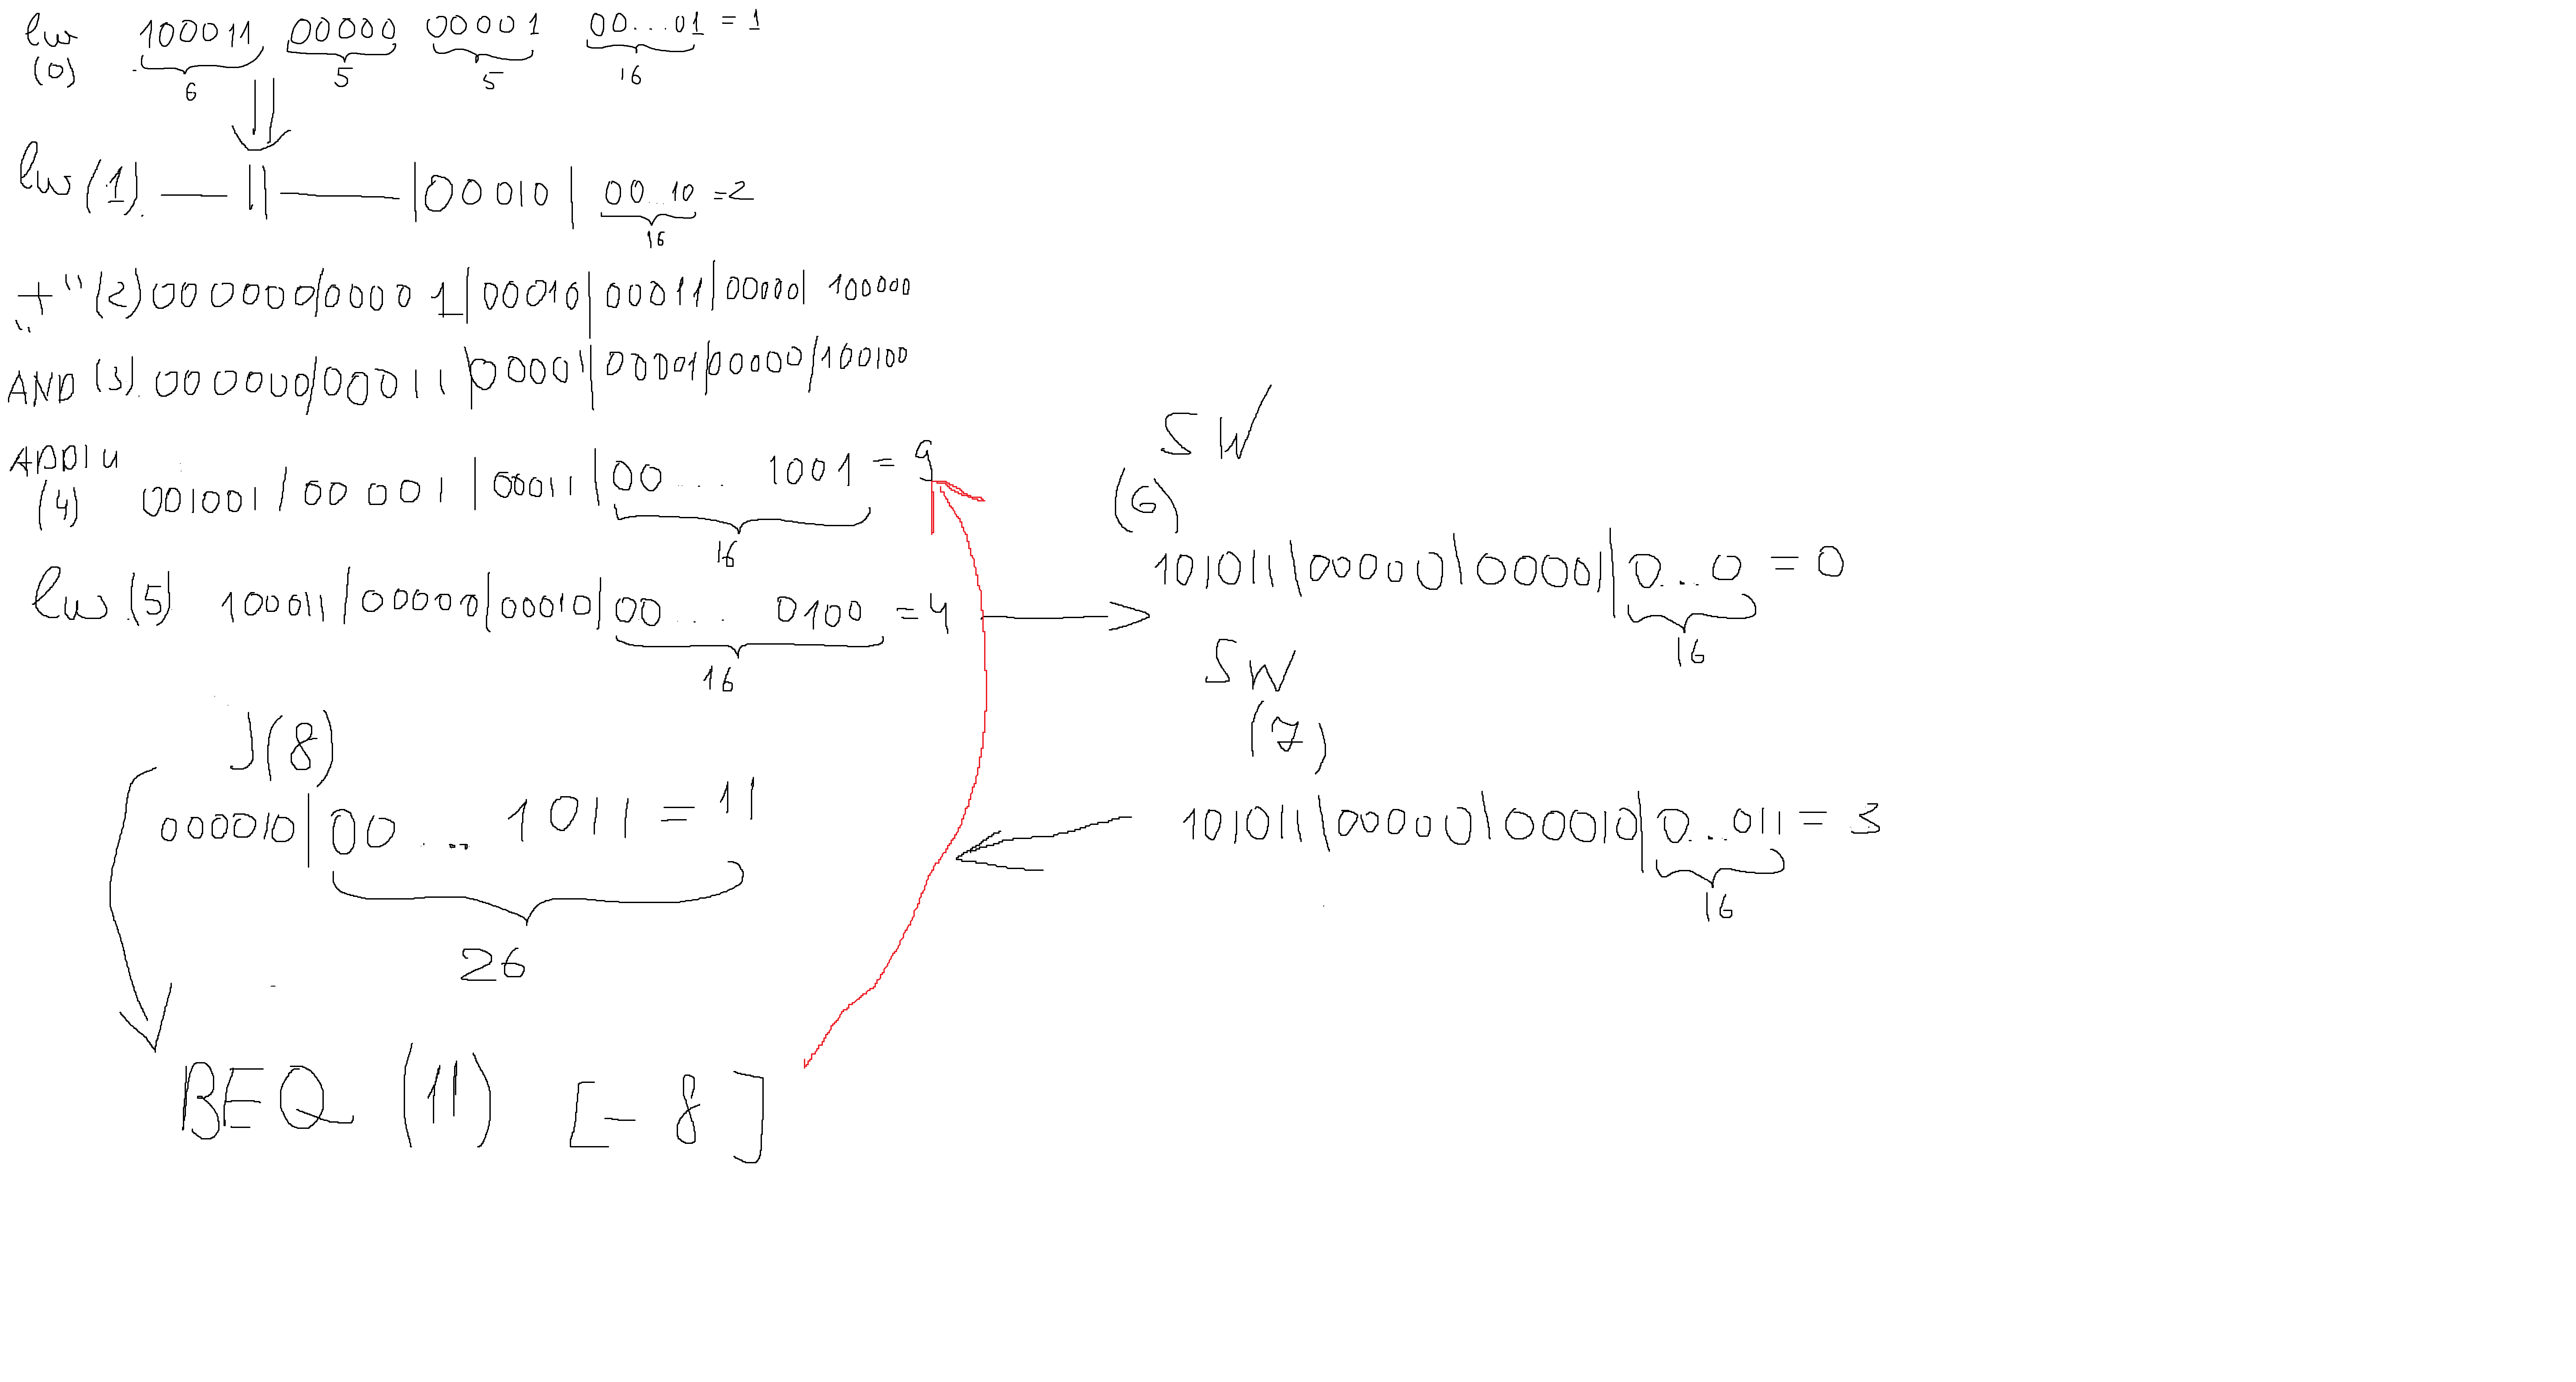 lw 100011 00000 00001 00...01 = 1
(0) 6 5 5 16
lw (1) — || — | 00010 | 00...10 = 2
16
"+" (2) 000000/00001|00010|00011|00000|100000
AND (3) 000000/00011|00001|00001|00000/100100
ADDIU
(4) 001001/00001|00011|00... 1001 = 9
16
lw (5) 100011/00000|00010|00... 0100 = 4
16
SW
(6)
101011|00000|00001|0...0 = 0
16
SW
(7)
101011|00000|00010|0...011 = 3
16
J(8)
000010|00... 1011 = 11
26
BEQ (11) [-8]